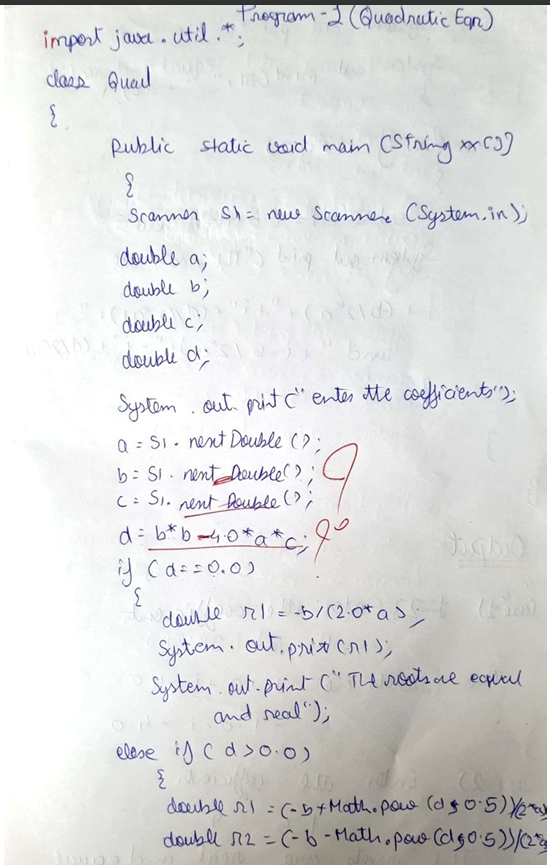 Program-1 (Quadratic Eqn)
import java.util.*;
class Quad
{
public static void main (String xx[])
{
Scanner S1 = new Scanner (System.in);
double a;
double b;
double c;
double d;
System.out.print (" enter the coefficients");
a = S1.nextDouble ();
b = S1.next Double();
c = S1.next Double();
d = b*b-4.0*a*c;
if (d==0.0)
{
double r1 = -b/(2.0*a);
System.out.print (r1);
System.out.print (" The roots are equal
and real");
else if (d>0.0)
{
double r1 = (-b+Math.pow (d,0.5))/(2*a)
double r2 = (-b-Math.pow (d,0.5))/(2*a